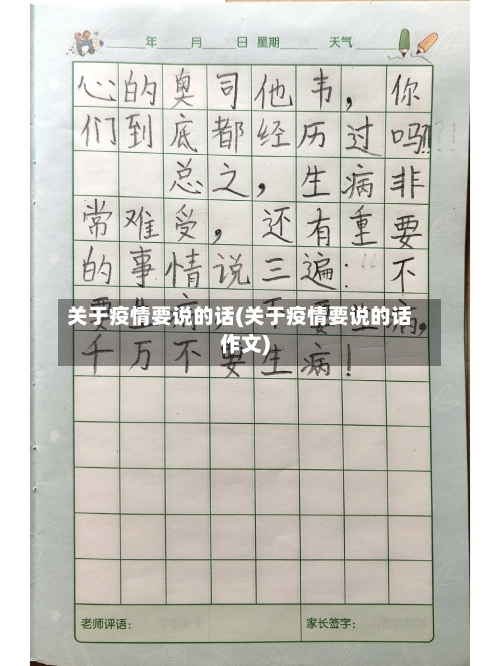 年 月 日 星期 天气
心的奥司他韦,你
们到底都经历过吗!!?!
总之,生病非
常难受,还有重要
的事情说三遍:“不
要生病,不要生病,
关于疫情要说的话(关于疫情要说的话
作文)
千万不要生病!
老师评语: 家长签字: